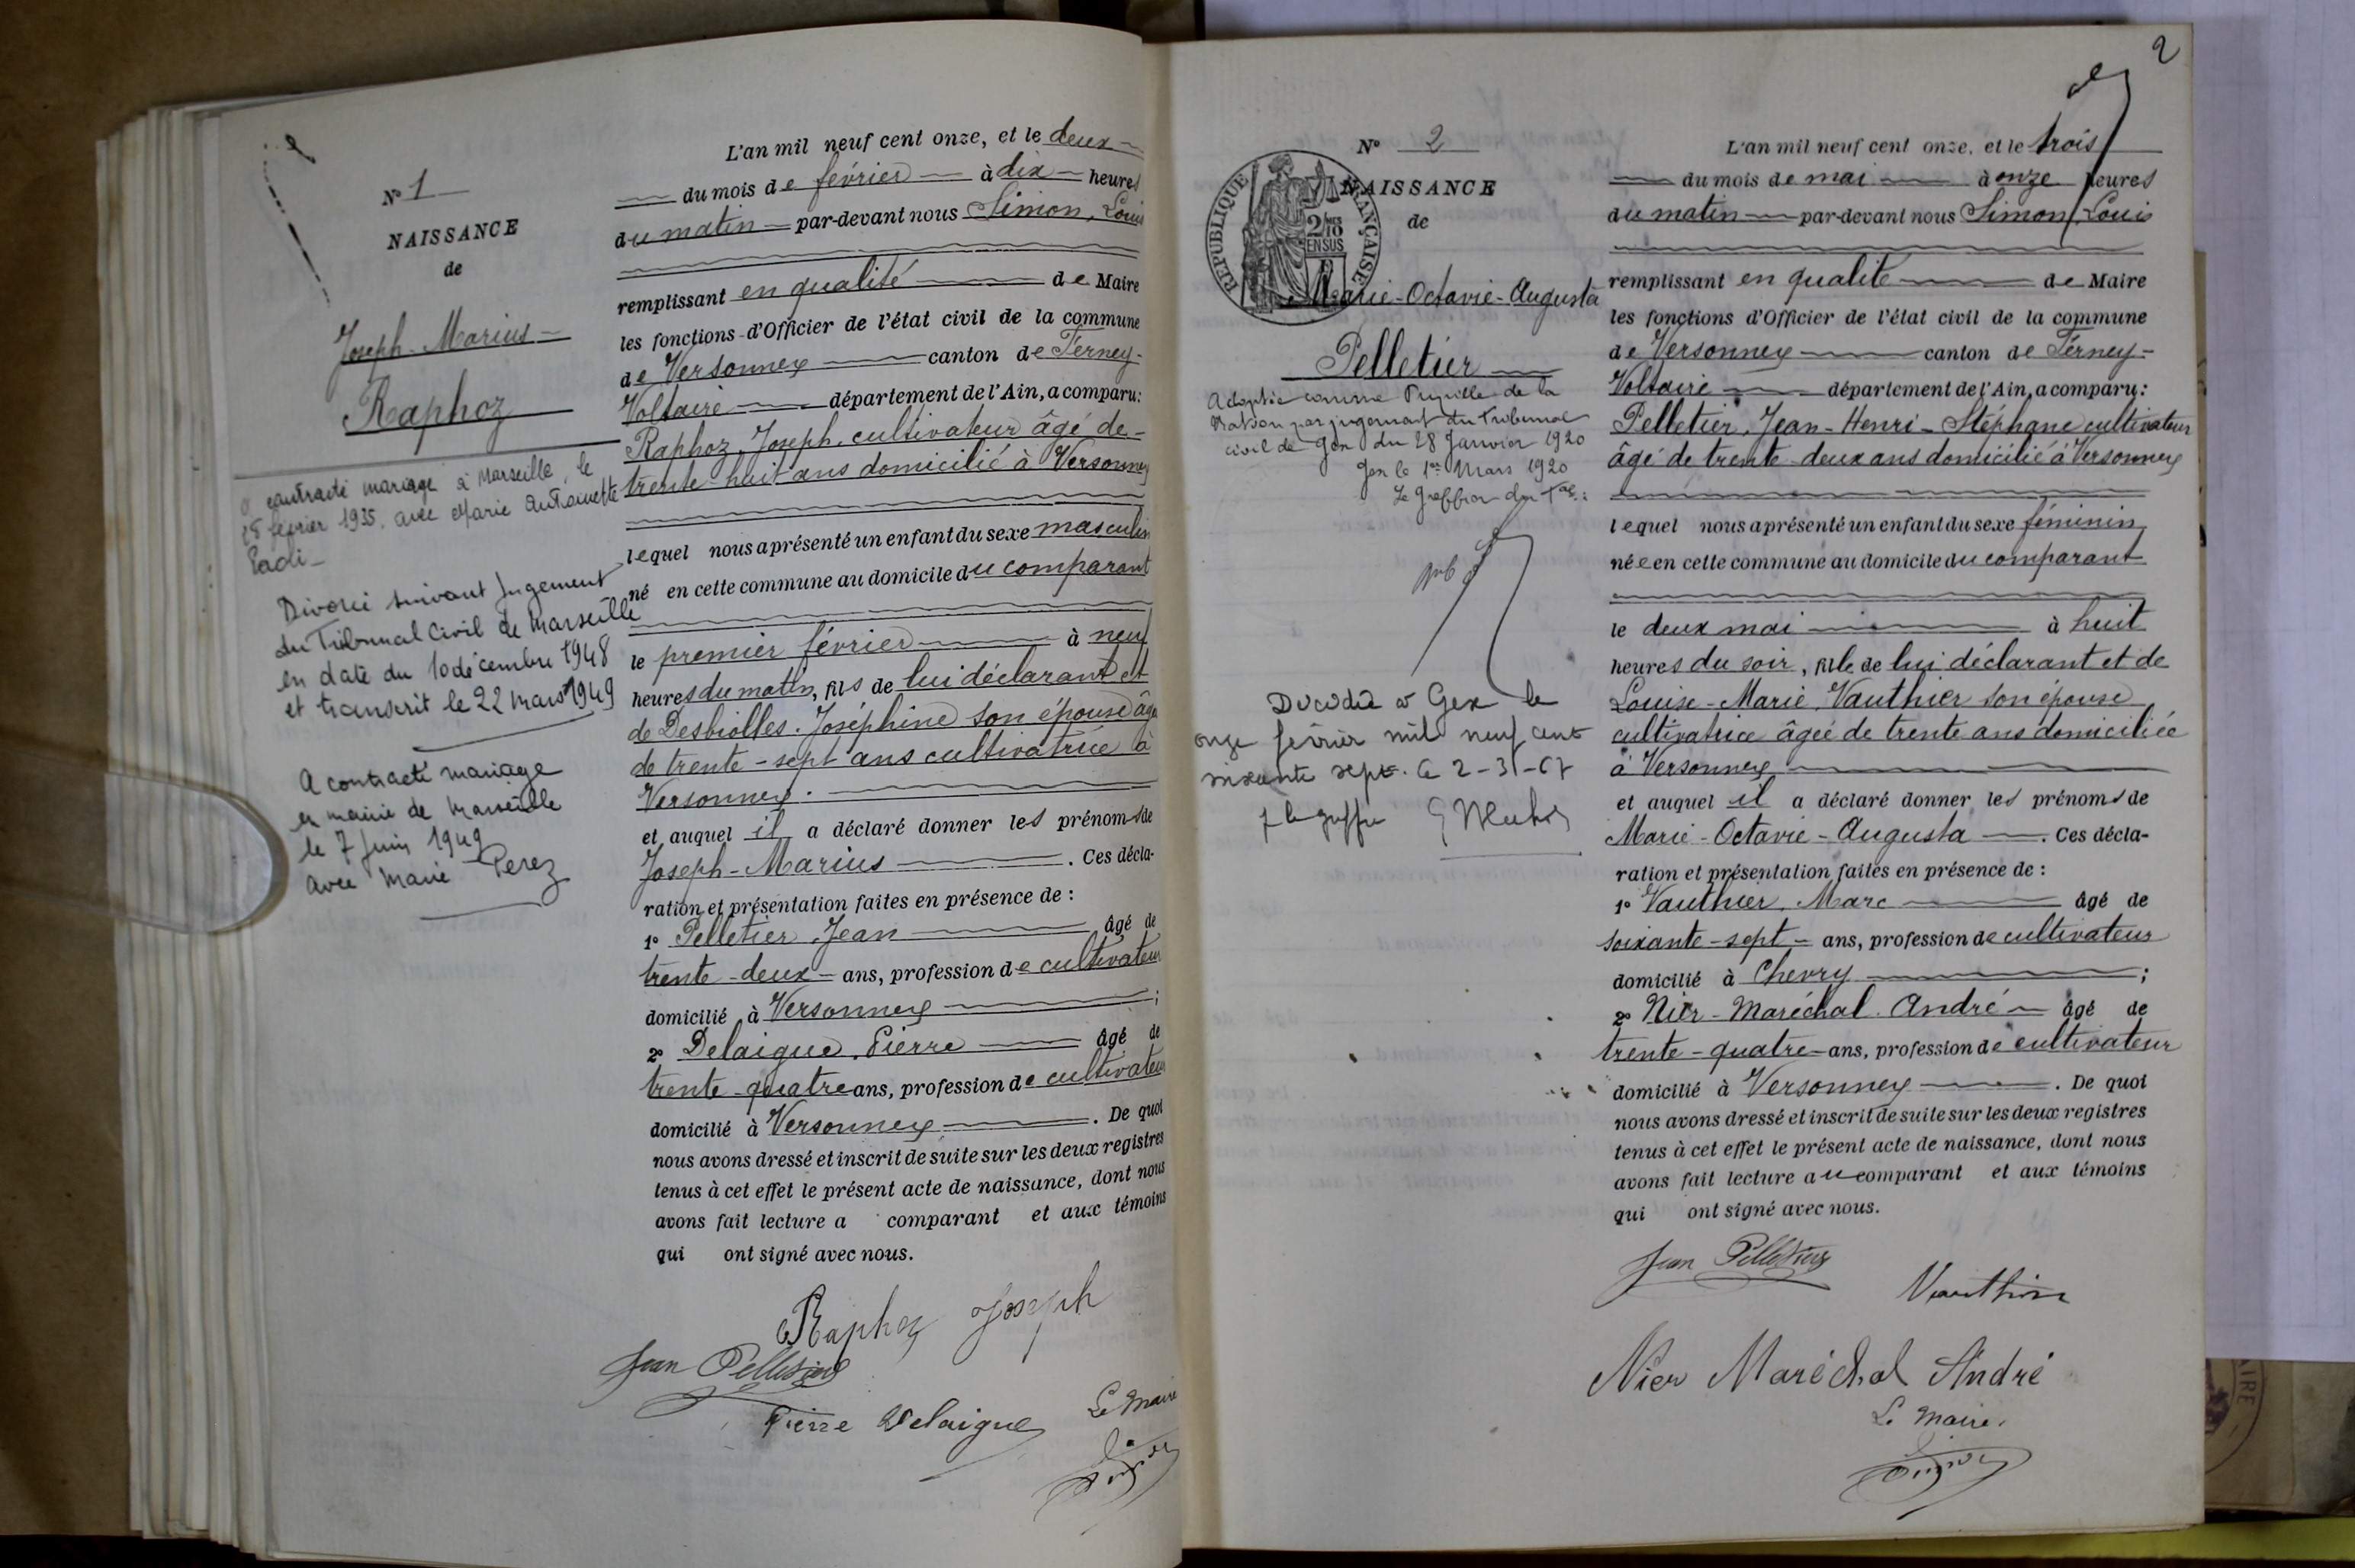 N° 1
NAISSANCE
de
Joseph-Marius
Raphoz
contracté mariage à Marseille, le
février 1935, avec Marie Antoinette
Divorcé suivant Jugement
du Tribunal Civil de Marseille
en date du 10 décembre 1948
et transcrit le 22 mars 1949
A contracté mariage
en mairie de Marseille
le 7 Juin 1949
avec Marie Perez
L'an mil neuf cent onze, et le deux
du mois de février à dix heures
du matin par-devant nous Simon, Louis
remplissant en qualité de Maire
les fonctions d'Officier de l'état civil de la commune
de Versonnex canton de Ferney-
Voltaire département de l'Ain, a comparu:
Raphoz, Joseph, cultivateur âgé de
trente huit ans domicilié à Versonnex
lequel nous a présenté un enfant du sexe masculin
né en cette commune au domicile du comparant
le premier février à neuf
heures du matin, fils de lui déclarant et
de Desbiolles. Joséphine son épouse âgée
de trente-sept ans cultivatrice à
Versonnex.
et auquel il a déclaré donner les prénoms de
Joseph-Marius . Ces décla-
ration et présentation faites en présence de :
1° Pelletier, Jean âgé de
trente-deux ans, profession de cultivateur
domicilié à Versonnex ;
2° Delaigue, Pierre âgé de
trente-quatre ans, profession de cultivateur
domicilié à Versonnex . De quoi
nous avons dressé et inscrit de suite sur les deux registres
tenus à cet effet le présent acte de naissance, dont nous
avons fait lecture a comparant et aux témoins
qui ont signé avec nous.
Raphoz Joseph
Jean Pelletier
Pierre Delaigue Le Maire
Simon
2
N° 2
RÉPUBLIQUE FRANÇAISE
2/10 EN SUS
NAISSANCE
de
Marie-Octavie-Augusta
Pelletier
Adoptée comme Pupille de la
Nation par jugement du Tribunal
civil de Gex du 28 Janvier 1920
Gex le 1er Mars 1920
Le Greffier du Tal:
Décédée à Gex le
onze février mil neuf cent
soixante sept. Le 2-31-67
L'an mil neuf cent onze, et le trois
du mois de mai à onze heures
du matin par-devant nous Simon, Louis
remplissant en qualité de Maire
les fonctions d'Officier de l'état civil de la commune
de Versonnex canton de Ferney-
Voltaire département de l'Ain, a comparu:
Pelletier, Jean-Henri-Stéphane cultivateur
âgé de trente-deux ans domicilié à Versonnex
lequel nous a présenté un enfant du sexe féminin
née en cette commune au domicile du comparant
le deux mai à huit
heures du soir, fille de lui déclarant et de
Louise-Marie Vauthier son épouse
cultivatrice âgée de trente ans domiciliée
à Versonnex
et auquel il a déclaré donner les prénoms de
Marie-Octavie-Augusta . Ces décla-
ration et présentation faites en présence de :
1° Vauthier, Marc âgé de
soixante-sept ans, profession de cultivateur
domicilié à Chevry ;
2° Nier-Maréchal André âgé de
trente-quatre ans, profession de cultivateur
domicilié à Versonnex . De quoi
nous avons dressé et inscrit de suite sur les deux registres
tenus à cet effet le présent acte de naissance, dont nous
avons fait lecture au comparant et aux témoins
qui ont signé avec nous.
Jean Pelletier
Vauthier
Nier Maréchal André
Le Maire,
Simon